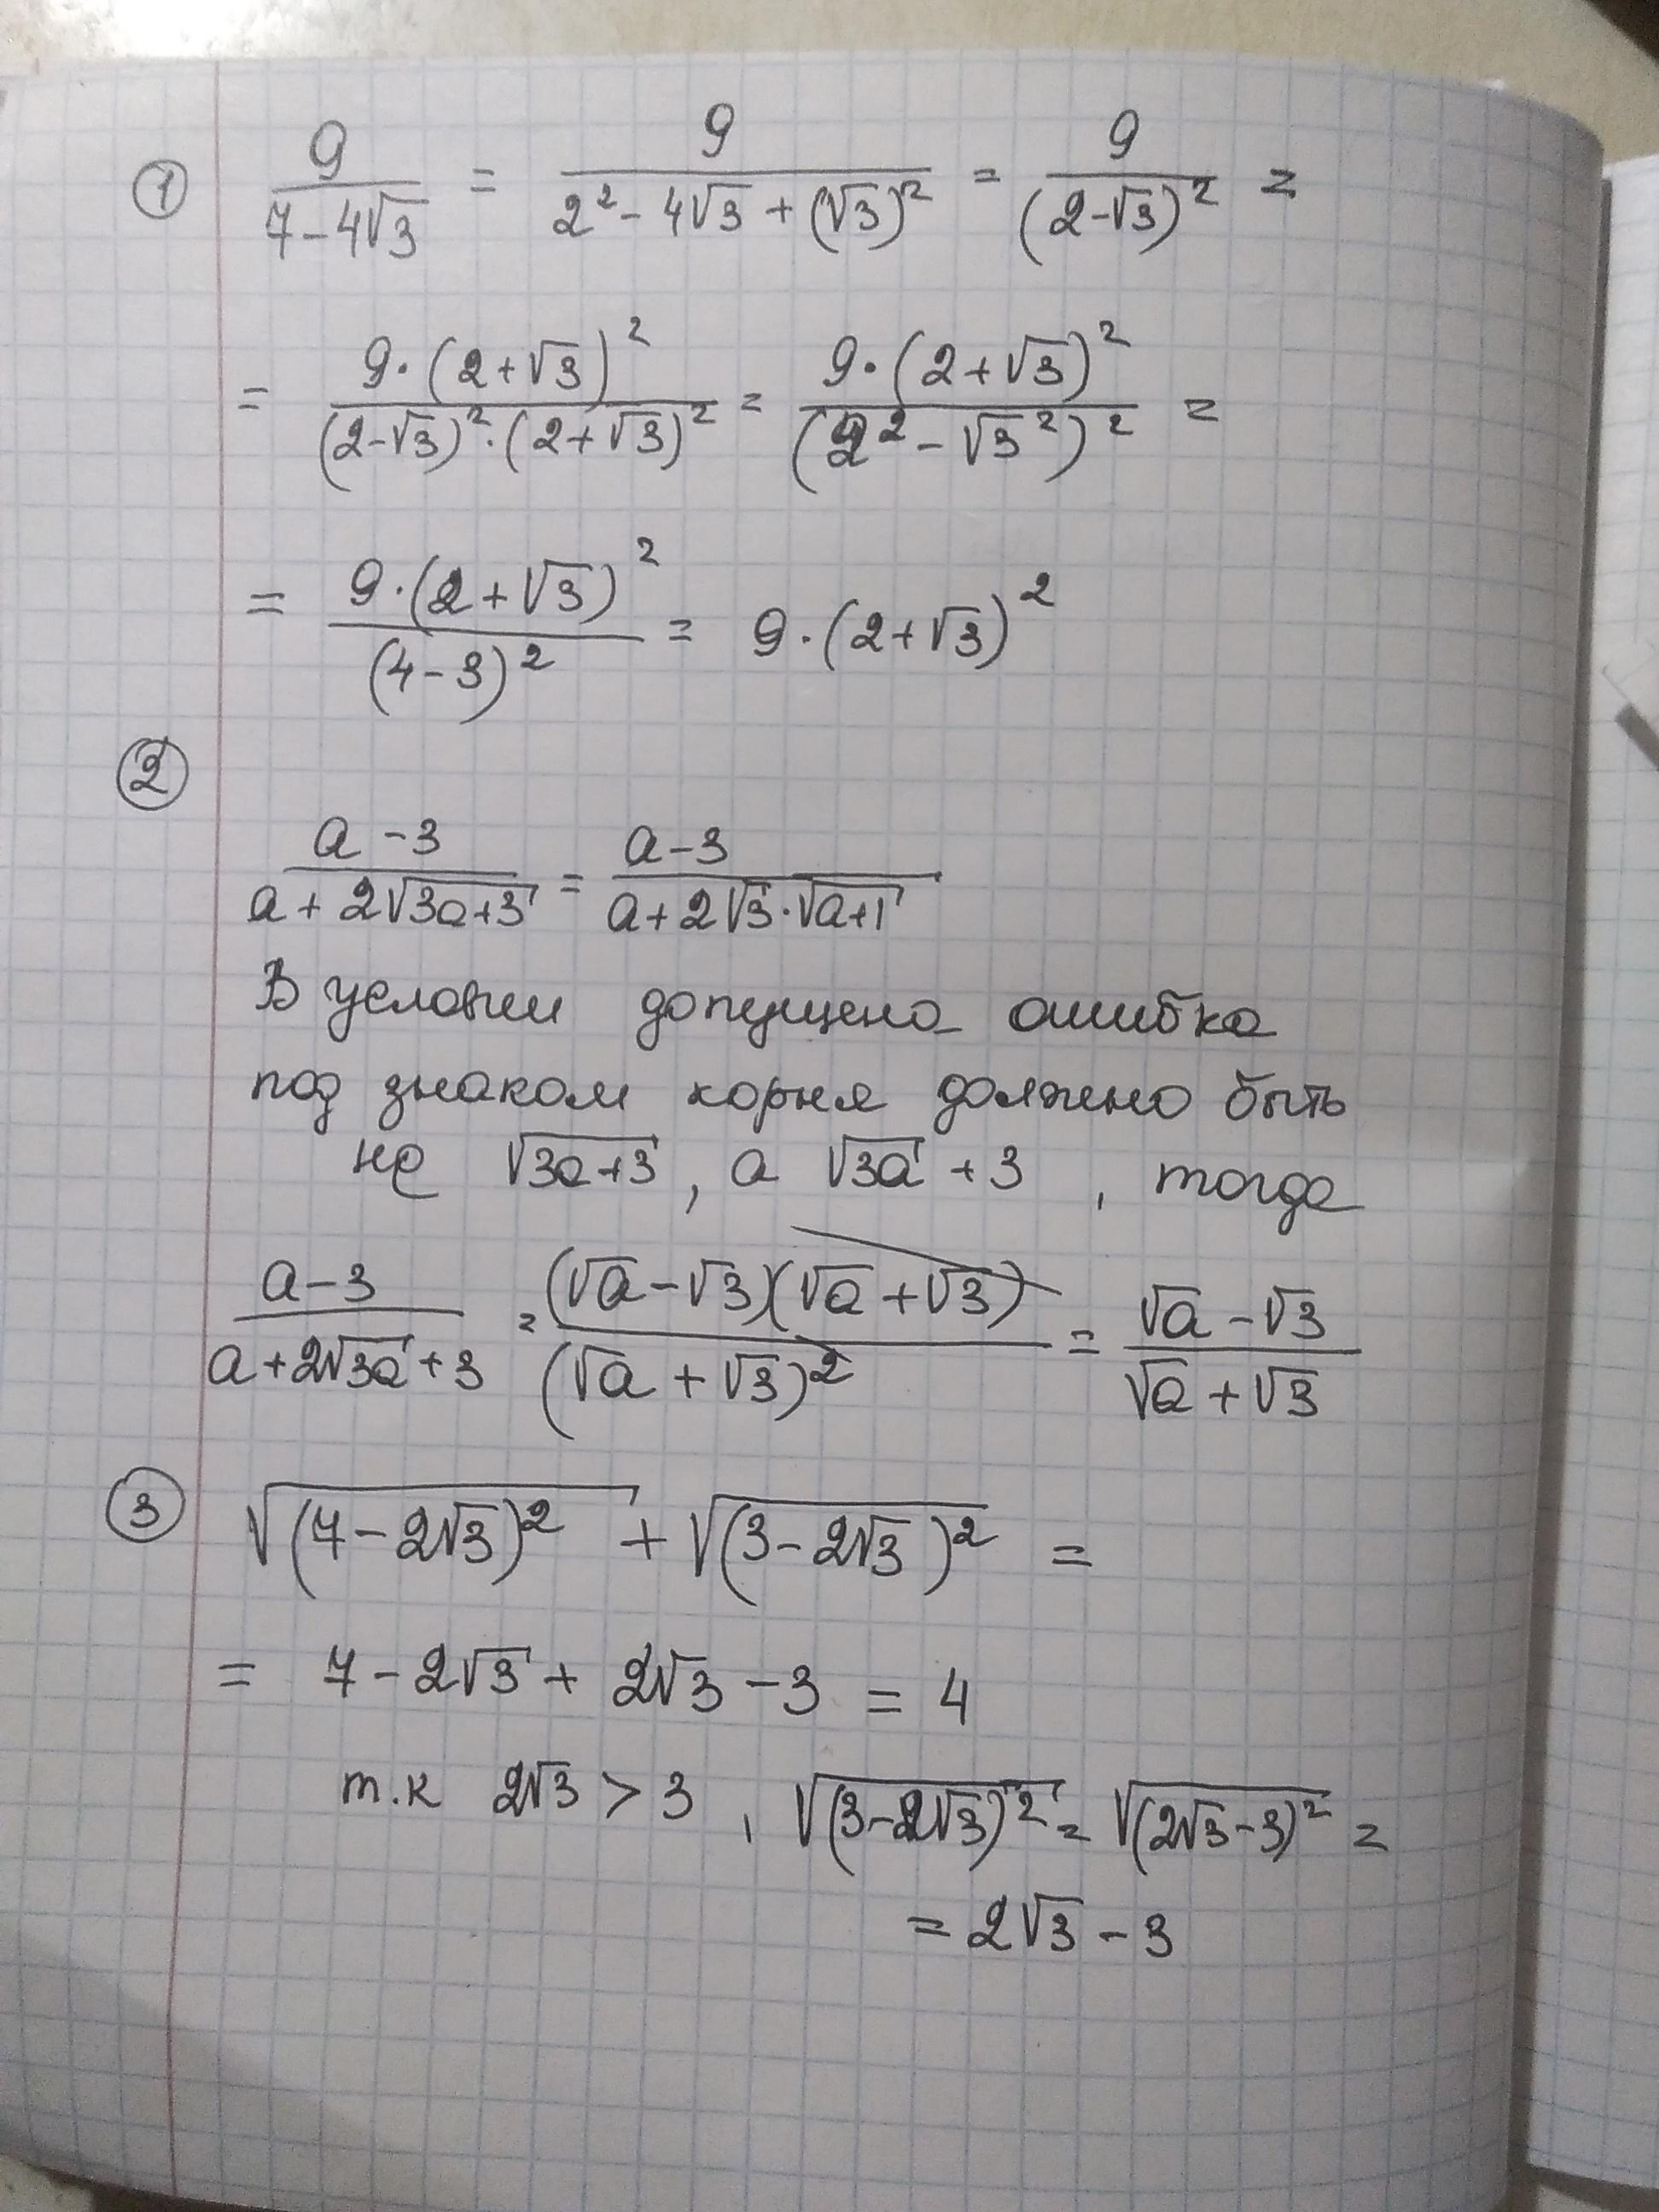 ① 9/(7-4√3) = 9/(2²-4√3+(√3)²) = 9/(2-√3)² =
= 9·(2+√3)²/((2-√3)²·(2+√3)²) = 9·(2+√3)²/(2²-√3²)² =
= 9·(2+√3)²/(4-3)² = 9·(2+√3)²
②
(a-3)/(a+2√(3a+3)) = (a-3)/(a+2√3·√(a+1))
В условии допущена ошибка
под знаком корня должно быть
не √(3a+3), а √(3a)+3, тогда
(a-3)/(a+2√(3a)+3) = (√a-√3)(√a+√3)/(√a+√3)² = (√a-√3)/(√a+√3)
③ √((7-2√3)²) + √((3-2√3)²) =
= 7-2√3+2√3-3 = 4
т.к 2√3 > 3, √((3-2√3)²) = √((2√3-3)²) =
= 2√3-3